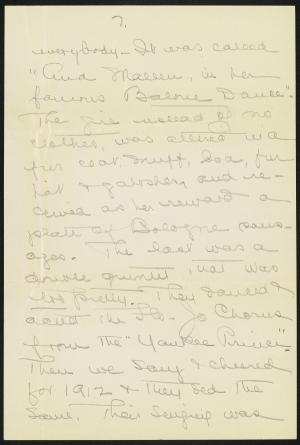 7.
everybody - It was called
"Aud Maeeen, in her
famous Balone Dance".
The girl instead of no
clothes, was attired in a
fur coat, muff, boa, fur
hat & galoshes, and re-
ceived as her reward a
plate of Bologne saus-
ages. The last was a
double quintet that was
too pretty. They danced &
acted the Flo-Jo Chorus
from the "Yankee Prince".
Then we sang & cheered
for 1912 & they did the
same. Their singing was